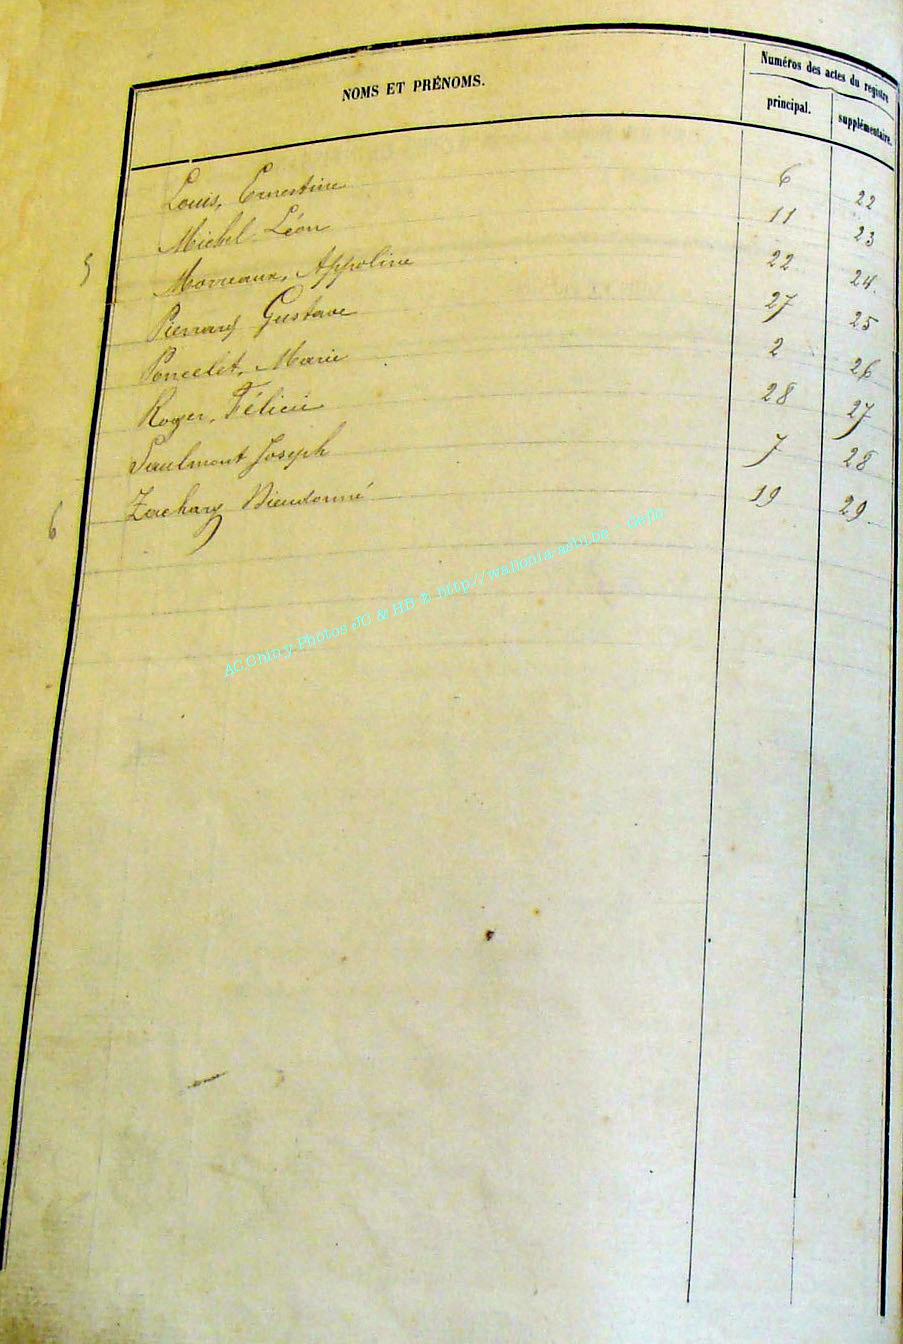 Numéros des actes du registre
NOMS ET PRÉNOMS.
principal. supplémentaire.
Louis, Ernestine 6 22
Michel Léon 11 23
5 Morueaux, Appoline 22 24.
Pierrard Gustave 27 25
Poncelet, Marie 2 26
Roger, Félicie 28 27
Saulmont Joseph 7 28
6 Zachary Dieudonné 19 29.
AC.Chiny Photos JC & HB © http//wallonia-asbl.be - defio